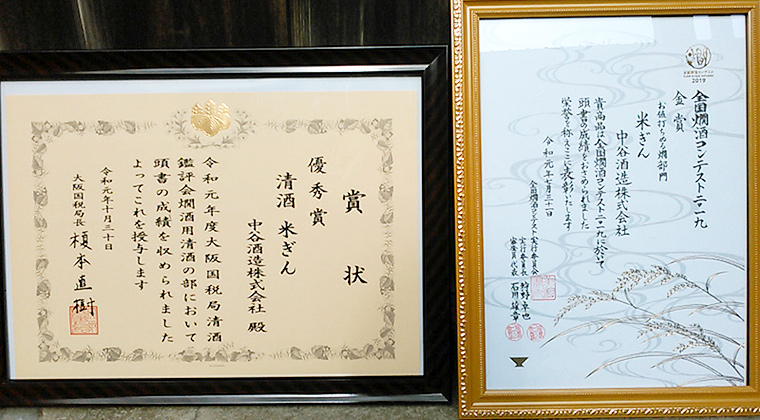 賞状
優秀賞
清酒 米ぎん
中谷酒造株式会社 殿
令和元年度大阪国税局清酒
鑑評会燗酒用清酒の部において
頭書の成績を収められました
よってこれを授与します
令和元年十月三十日
大阪国税局長 榎本直樹
2019
全国燗酒コンテスト二〇一九
お値打ちぬる燗部門
金賞
米ぎん
中谷酒造株式会社
貴商品は全国燗酒コンテスト二〇一九に於いて
頭書の成績をおさめられました
栄誉を称えここに表彰いたします
令和元年七月三十一日
全国燗酒コンテスト実行委員会
実行委員長 狩野卓也
審査員代表 石川雄章